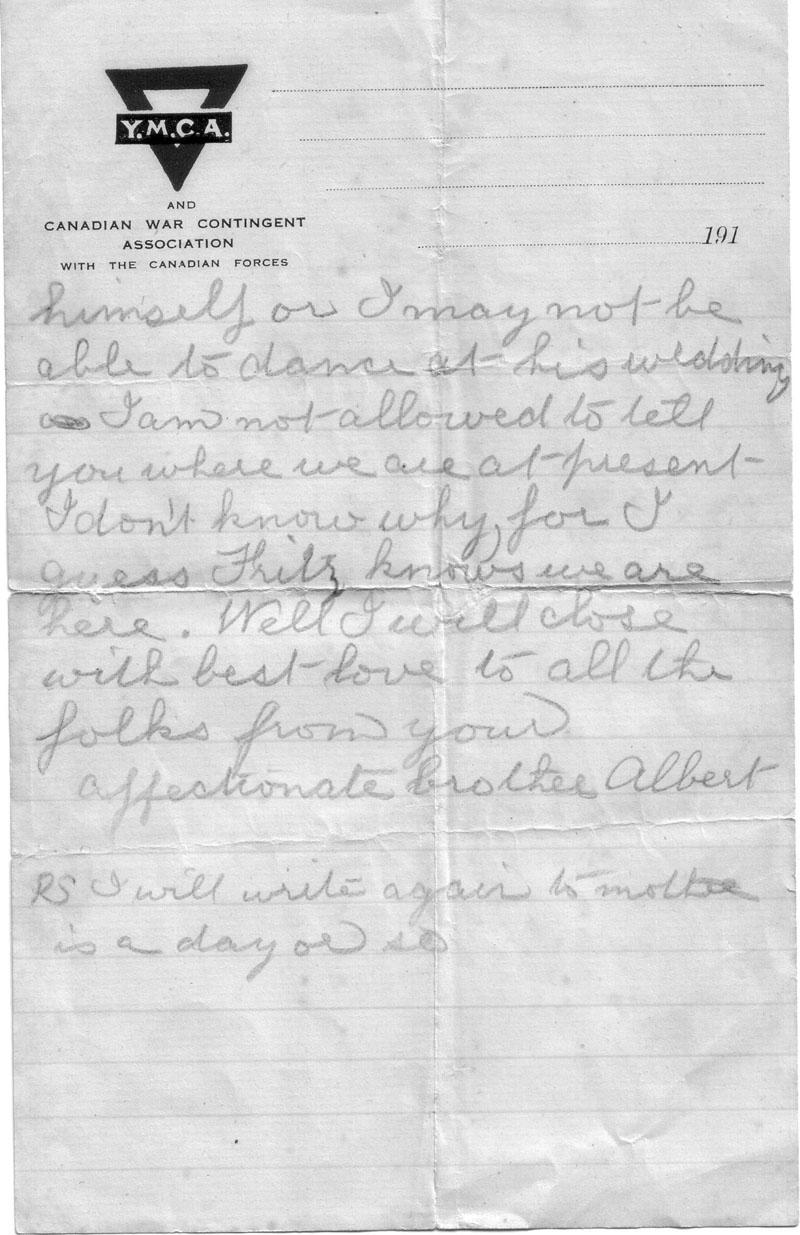 Y.M.C.A.
AND
CANADIAN WAR CONTINGENT
ASSOCIATION
WITH THE CANADIAN FORCES
191
himself or I may not be
able to dance at his wedding
I am not allowed to tell
you where we are at present
I don't know why, for I
guess Fritz knows we are
here. Well I will close
with best love to all the
folks from your
affectionate brother Albert
PS I will write again to mother
is a day or so